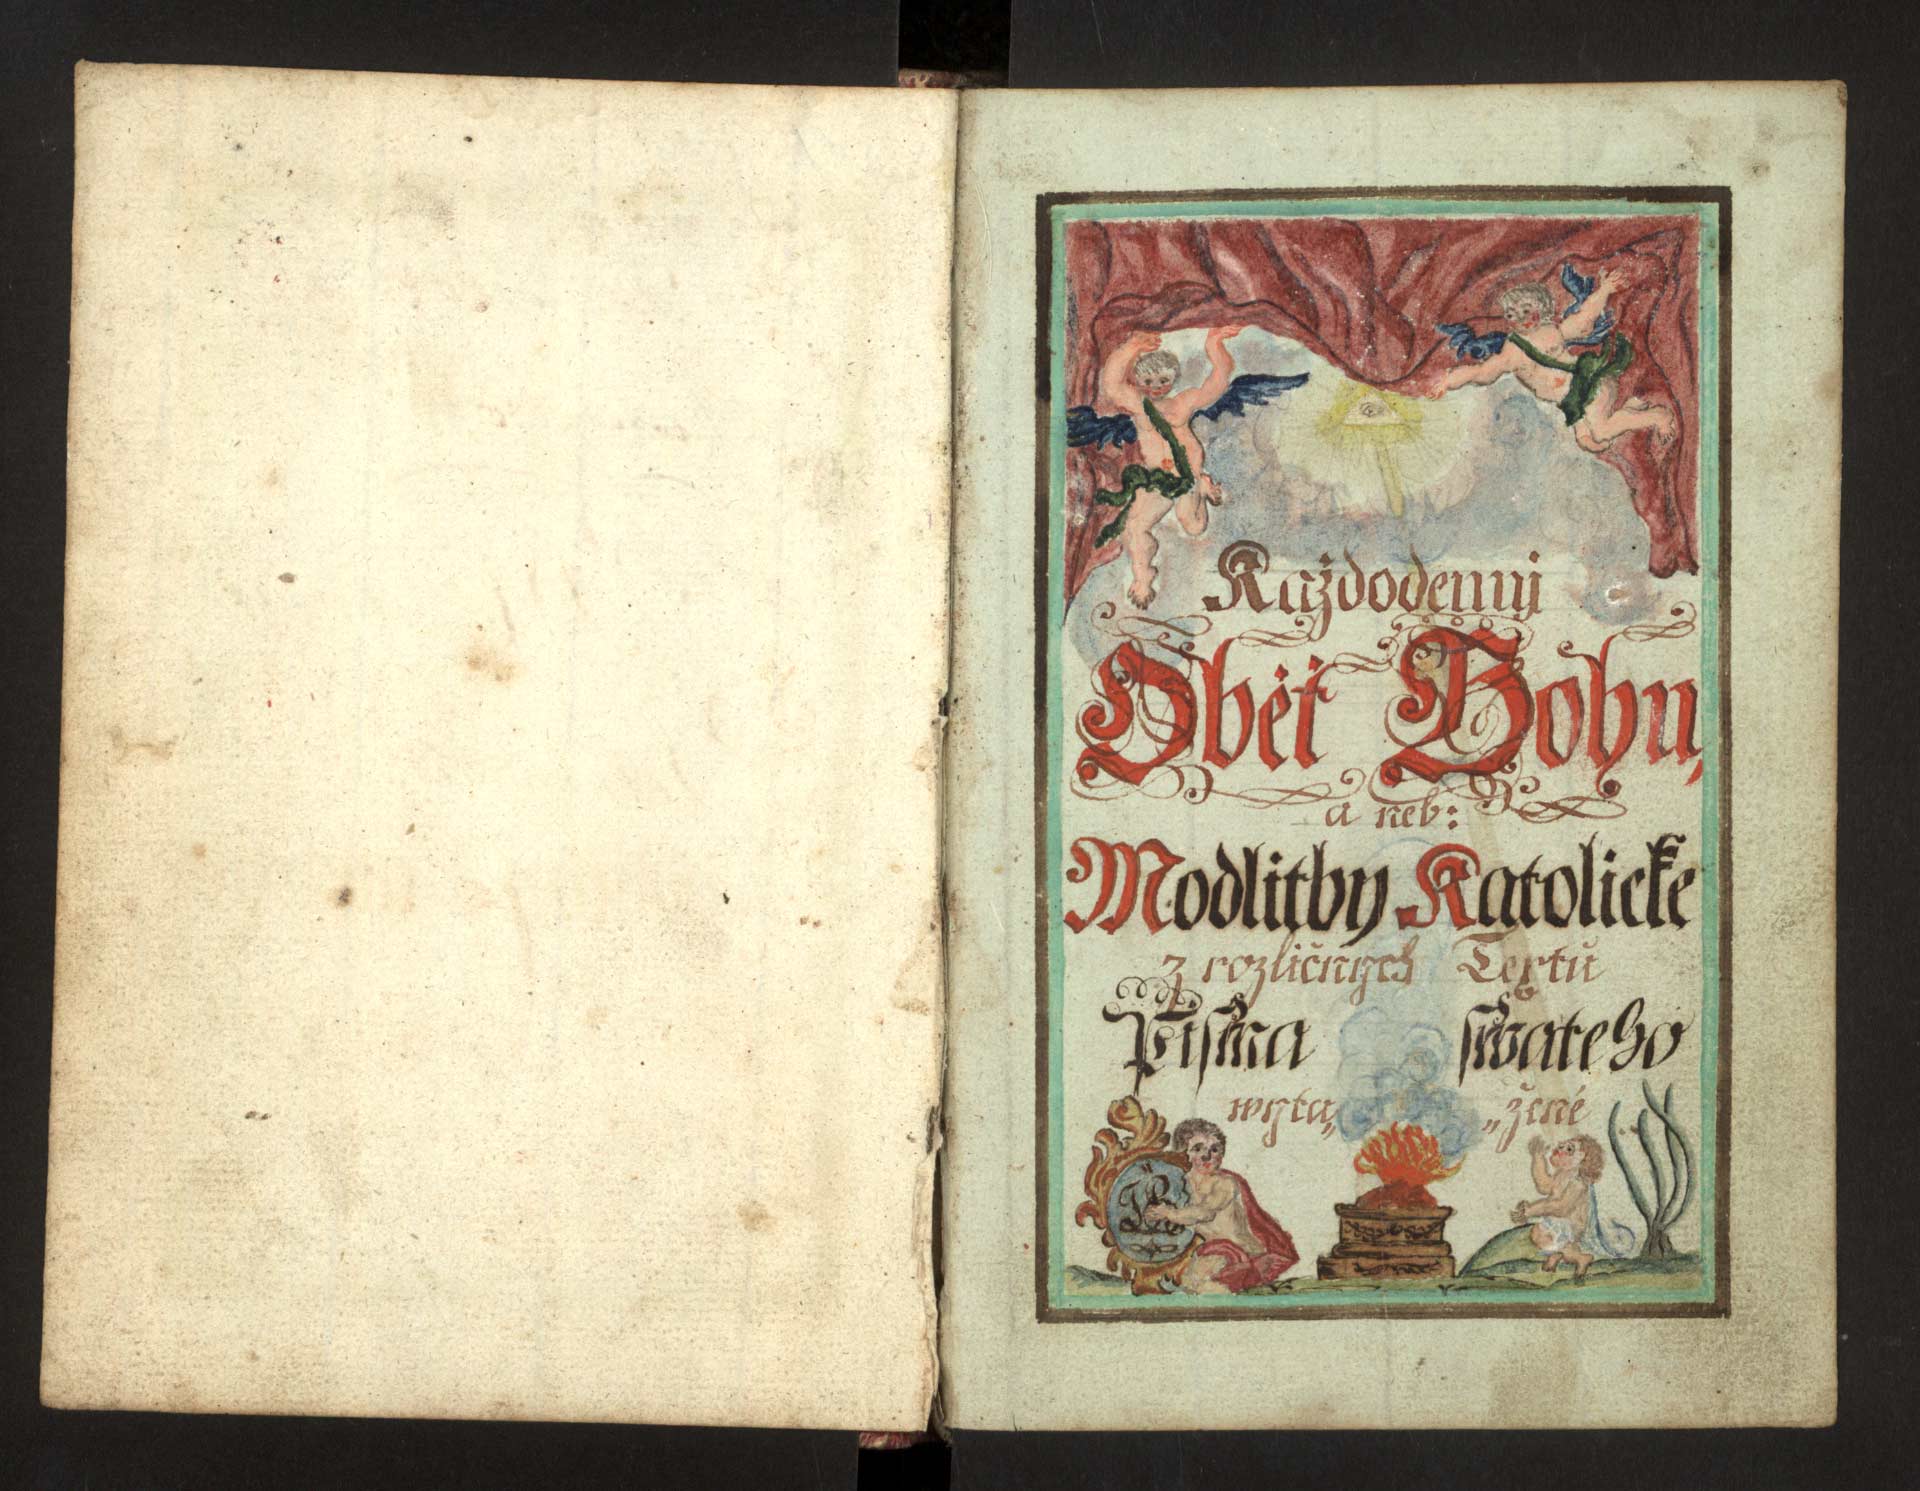 Každodennj
Obět Bohu,
a neb:
Modlitby Katolicke
z rozličnych Textů
Pisma swateho
wyta„ „žené